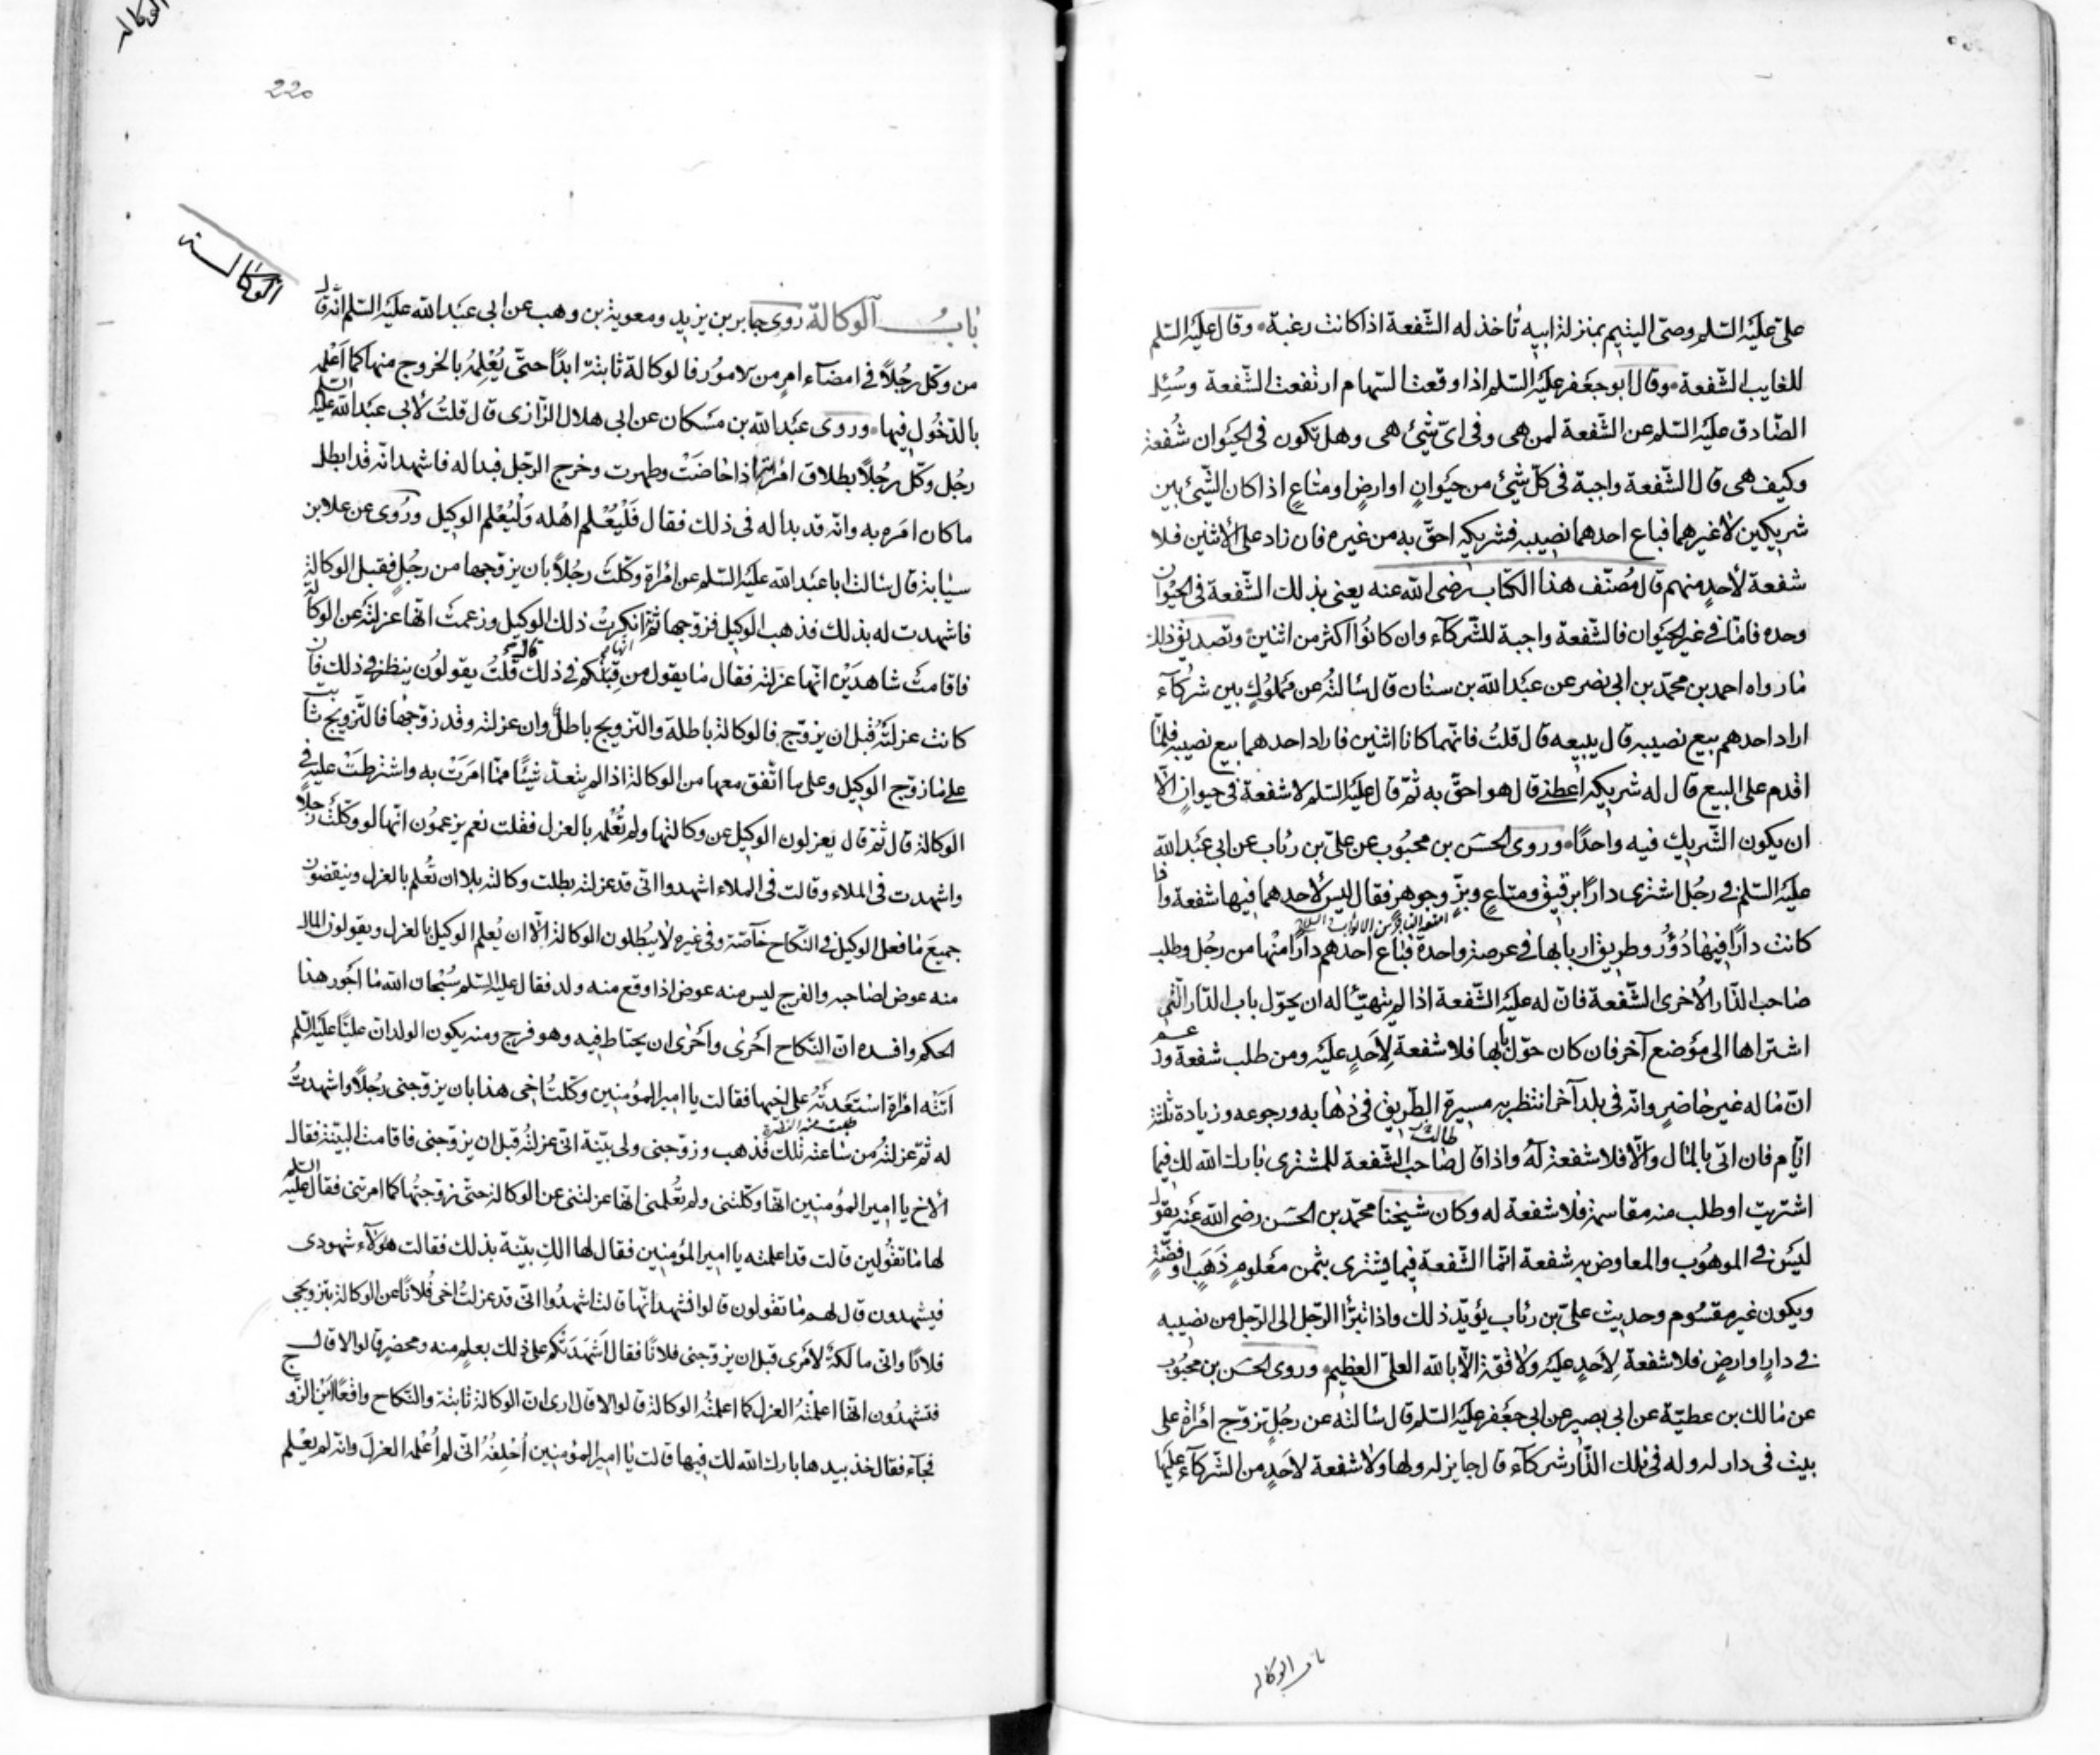 علي عليه السلم وصي اليتيم بمنزلة ابيه ياخذ له الشفعة اذا كانت رغبة وقال عليه السلم
للغايب الشفعة وقال ابو جعفر عليه السلم اذا وقعت السهام ارتفعت الشفعة وسئل
الصادق عليه السلم عن الشفعة لمن هي وفي اي شيئ هي وهل تكون في الحيوان شفعة
وكيف هي قال الشفعة واجبة في كل شيئ من حيوان او ارض او متاع اذا كان الشيئ بين
شريكين لا غيرهما فباع احدهما نصيبه فشريكه احق به من غيره فان زاد على الاثنين فلا
شفعة لاحد منهم قال مصنف هذا الكتاب رضى الله عنه يعنى بذلك الشفعة في الحيوان
وحده فاما في غير الحيوان فالشفعة واجبة للشركاء وان كانوا اكثر من اثنين وتصديق ذلك
ما رواه احمد بن محمد بن ابي نصر عن عبد الله بن سنان قال سالته عن مملوك بين شركاء
اراد احدهم بيع نصيبه قال يبيعه قال قلت فانهما كانا اثنين فاراد احدهما بيع نصيبه فلما
اقدم على البيع قال له شريكه اعطني قال هو احق به ثم قال عليه السلم لا شفعة في حيوان الا
ان يكون الشريك فيه واحدا وروى الحسن بن محبوب عن علي بن رئاب عن ابي عبد الله
عليه السلم في رجل اشترى دارا برقيق ومتاع وبز وجوهر فقال ليس لاحد هما فيها شفعة واذا
كانت دارا فيها دور وطريق اربابها في عرصة واحدة فباع احدهم دارا منها من رجل وطلب
صاحب الدار الاخرى الشفعة فان له عليه الشفعة اذا لم يتهيا له ان يحول باب الدار التي
اشتراها الى موضع آخر فان كان حول بابها فلا شفعة لاحد عليه ومن طلب شفعة وزعم
ان ماله غير حاضر وانه في بلد آخر انتظر به مسيرة الطريق في ذهابه ورجوعه وزيادة ثلثة
ايام فان اتى بالمال والا فلا شفعة له واذا قال طالب صاحب الشفعة للمشترى بارك الله لك فيما
اشتريت او طلب منه مقاسمة فلا شفعة له وكان شيخنا محمد بن الحسن رضى الله عنه يقول
ليس في الموهوب والمعاوض به شفعة انما الشفعة فيما يشترى بثمن معلوم ذهب او فضة
ويكون غير مقسوم وحديث علي بن رئاب يؤيد ذلك واذا تبرأ الرجل الى الرجل من نصيبه
في دار او ارض فلا شفعة لاحد عليه ولا قوة الا بالله العلي العظيم وروى الحسن بن محبوب
عن مالك بن عطية عن ابي بصير عن ابي جعفر عليه السلم قال سالته عن رجل تزوج امراة على
بيت في دار له وله في تلك الدار شركاء قال جايز له ولها ولا شفعة لاحد من الشركاء عليها
باب الوكاله
الوكاله
220
الوكالة
باب الوكالة روى جابر بن يزيد ومعوية بن وهب عن ابي عبد الله عليه السلم انه قال
من وكل رجلا في امضاء امر من الامور فالوكالة ثابتة ابدا حتى يعلمه بالخروج منها كما اعلمه
بالدخول فيها وروى عبد الله بن مسكان عن ابي هلال الرازى قال قلت لابي عبد الله عليه السلم
رجل وكل رجلا بطلاق امراته اذا حاضت وطهرت وخرج الرجل فبدا له فاشهد انه قد ابطل
ما كان امره به وانه قد بدا له في ذلك فقال فليعلم اهله وليعلم الوكيل وروى عن علا بن
سيابة قال سالت ابا عبد الله عليه السلم عن امراة وكلت رجلا بان يزوجها من رجل فقبل الوكالة
فاشهدت له بذلك فذهب الوكيل فزوجها ثم انكرت ذلك الوكيل وزعمت انها عزلته عن الوكالة
فاقامت شاهدين انها عزلته فقال ما يقول من قبلكم في ذلك قلت يقولون ينظر في ذلك فان
كانت عزلته قبل ان يزوج فالوكالة باطلة والتزويج باطل وان عزلته وقد زوجها فالتزويج ثابت
على ما زوج الوكيل وعلى ما اتفق معها من الوكالة اذا لم يتعد شيئا مما امرت به واشترطت عليه في
الوكالة قال ثم قال يعزلون الوكيل عن وكالتها ولم تعلمه بالعزل فقلت نعم يزعمون انها لو وكلت رجلا
واشهدت في الملاء وقالت في الملاء اشهدوا اني قد عزلته بطلت وكالته بلا ان تعلم بالعزل وينقضون
جميع ما فعل الوكيل في النكاح خاصة وفي غيره لا يبطلون الوكالة الا ان يعلم الوكيل بالعزل ويقولون المال
منه عوض لصاحبه والفرج ليس منه عوض اذا وقع منه ولد فقال عليه السلم سبحان الله ما اجور هذا
الحكم وافسده ان النكاح احرى واحرى ان يحتاط فيه وهو فرج ومنه يكون الولد ان عليا عليه السلم
اتته امراة استعدته على اخيها فقالت يا امير المؤمنين وكلت اخي هذا بان يزوجني رجلا واشهدت
له ثم عزلته من ساعته تلك فذهب وزوجني ولي بينة اني عزلته قبل ان يزوجني فاقامت البينة فقال
الاخ يا امير المؤمنين انها وكلتني ولم تعلمني انها عزلتني عن الوكالة حتى زوجتها كما امرتني فقال عليه السلم
لها ما تقولين قالت قد اعلمته يا امير المؤمنين فقال لها الك بينة بذلك فقالت هولآء شهودى
فيشهدون قال لهم ما تقولون قالوا نشهد انها قالت اشهدوا اني قد عزلت اخي فلانا عن الوكالة بتزويجي
فلانا واني مالكة لامرى قبل ان يزوجني فلانا فقال اشهدتكم على ذلك بعلم منه ومحضر قالوا لا قال
فتشهدون انها اعلمته العزل كما اعلمته الوكالة قالوا لا قال ارى ان الوكالة ثابتة والنكاح واقعا اين الزوج
فجآء فقال خذ بيدها بارك الله لك فيها قالت يا امير المؤمنين احلفه اني لم اعلمه العزل وانه لم يعلم